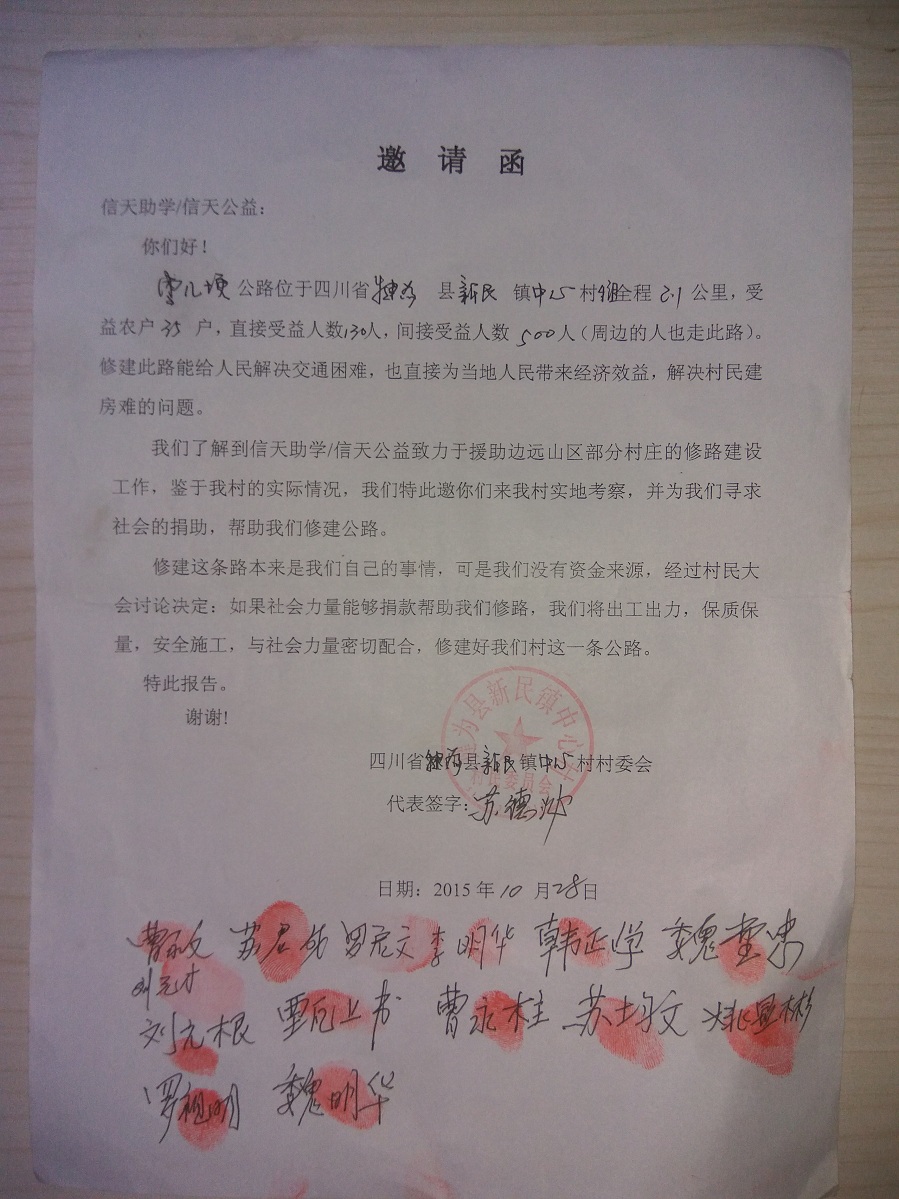 邀请函
信天助学/信天公益：
你们好！
公路位于四川省犍为县新民镇中心村 全程2.1公里，受
益农户35户，直接受益人数130人，间接受益人数500人（周边的人也走此路）。
修建此路能给人民解决交通困难，也直接为当地人民带来经济效益，解决村民建
房难的问题。
我们了解到信天助学/信天公益致力于援助边远山区部分村庄的修路建设
工作，鉴于我村的实际情况，我们特此邀你们来我村实地考察，并为我们寻求
社会的捐助，帮助我们修建公路。
修建这条路本来是我们自己的事情，可是我们没有资金来源，经过村民大
会讨论决定：如果社会力量能够捐款帮助我们修路，我们将出工出力，保质保
量，安全施工，与社会力量密切配合，修建好我们村这一条公路。
特此报告。
谢谢!
犍为县新民镇中心村
村民委员会
四川省犍为县新民镇中心村村委会
代表签字：苏德
日期：2015年10月28日
苏君 罗 文 李明华 韩正学 魏
刘元才
刘元根 曹永柱 苏均文 姚显彬
罗祖明 魏明华